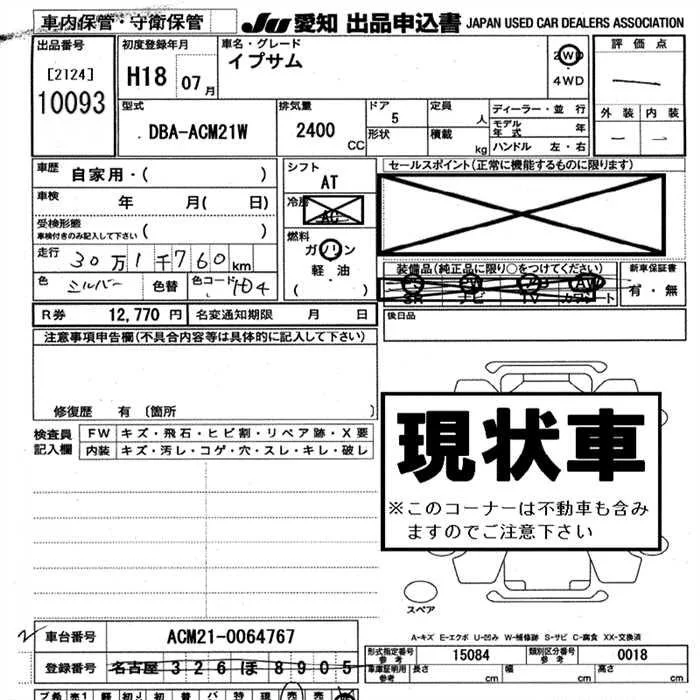 車内保管・守衛保管 JU 愛知 出品申込書 JAPAN USED CAR DEALERS ASSOCIATION
出品番号 初度登録年月 車名・グレード 評価点
[2124] H18 07月 イプサム 2WD
10093 4WD
型式 排気量 ドア 定員 ディーラー・並行 外装 内装
DBA-ACM21W 2400 CC 5 人 モデル年式 年
形状 積載 kg ハンドル 左・右
車歴 自家用・( ) シフト セールスポイント(正常に機能するものに限ります)
AT
車検 年 月( 日) 冷房
AC
受検形態 ( )
車検付きのみ記入して下さい
燃料
走行 30万1千760km ガソリン
軽・油
( )
装備品(純正品に限り○をつけてください) 新車保証書
色 シルバー 色替 色コード 1D4 SR ナビ TV AW 有・無
R券 12,770 円 名変通知期限 月 日 後日品
注意事項申告欄(不具合内容等は具体的に記入して下さい)
修復歴 有 〔箇所 〕
現状車
※このコーナーは不動車も含み
ますのでご注意下さい
検査員 FW キズ・飛石・ヒビ割・リペア跡・X要
記入欄 内装 キズ・汚レ・コゲ・穴・スレ・キレ・破レ
スペア
A-キズ E-エクボ U-凹み W-補修跡 S-サビ C-腐食 XX-交換済
車台番号 ACM21-0064767
形式指定番号 参考 15084 類別区分番号 参考 0018
登録番号 名古屋 326 ほ 8905
車庫証明用 参考 長さ cm 幅 cm 高さ cm